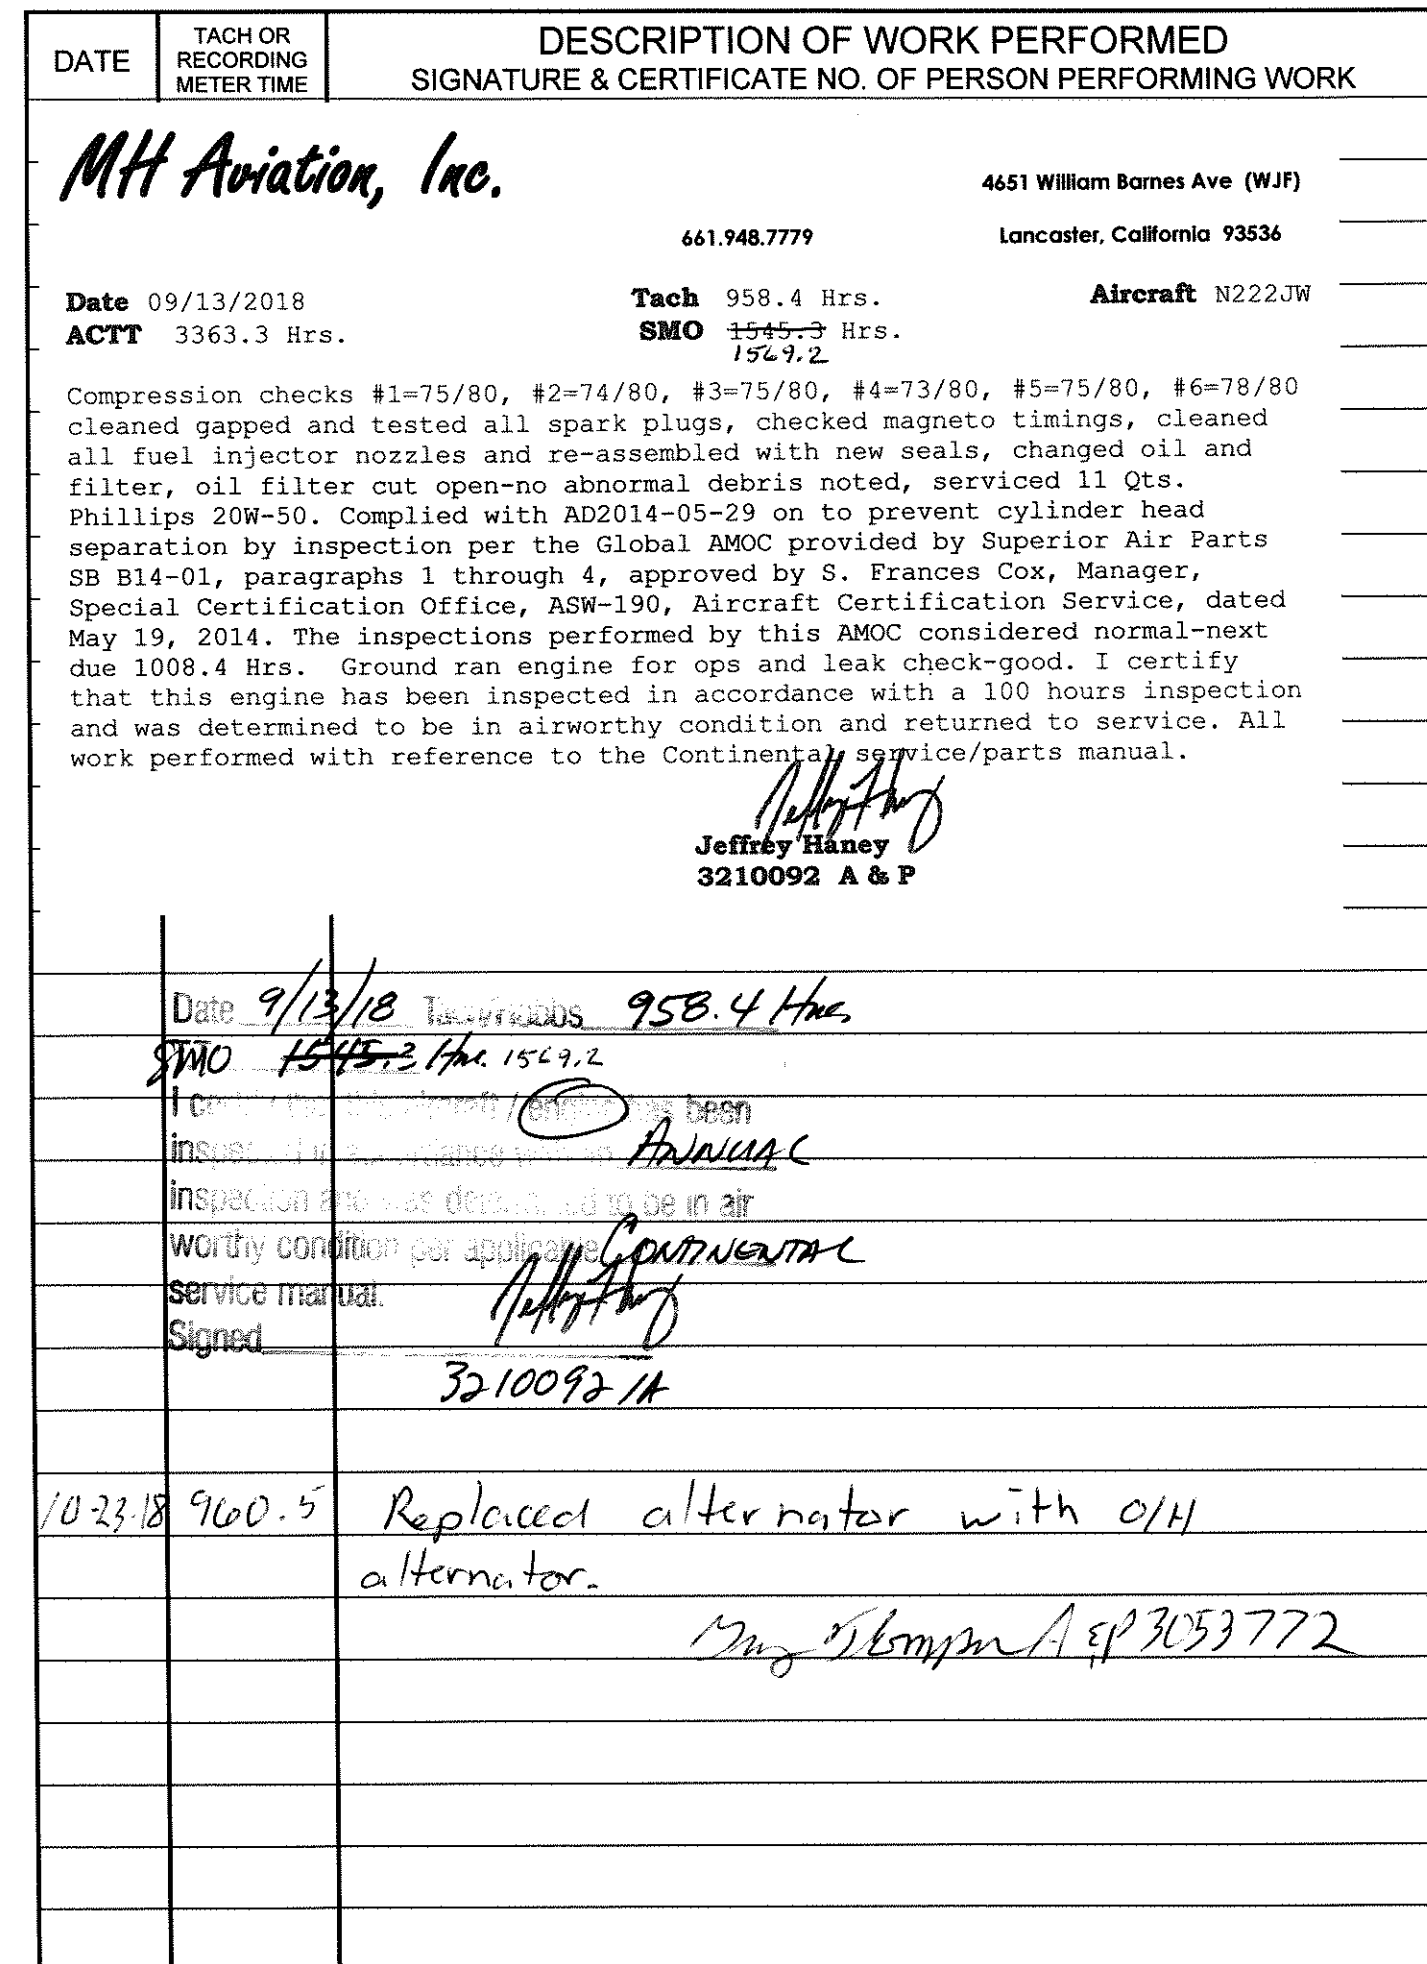 DATE
TACH OR
RECORDING
METER TIME
DESCRIPTION OF WORK PERFORMED
SIGNATURE & CERTIFICATE NO. OF PERSON PERFORMING WORK
MH Aviation, Inc.
4651 William Barnes Ave (WJF)
661.948.7779 Lancaster, California 93536
Date 09/13/2018 Tach 958.4 Hrs. Aircraft N222JW
ACTT 3363.3 Hrs. SMO 1545.3 Hrs.
1569.2
Compression checks #1=75/80, #2=74/80, #3=75/80, #4=73/80, #5=75/80, #6=78/80
cleaned gapped and tested all spark plugs, checked magneto timings, cleaned
all fuel injector nozzles and re-assembled with new seals, changed oil and
filter, oil filter cut open-no abnormal debris noted, serviced 11 Qts.
Phillips 20W-50. Complied with AD2014-05-29 on to prevent cylinder head
separation by inspection per the Global AMOC provided by Superior Air Parts
SB B14-01, paragraphs 1 through 4, approved by S. Frances Cox, Manager,
Special Certification Office, ASW-190, Aircraft Certification Service, dated
May 19, 2014. The inspections performed by this AMOC considered normal-next
due 1008.4 Hrs. Ground ran engine for ops and leak check-good. I certify
that this engine has been inspected in accordance with a 100 hours inspection
and was determined to be in airworthy condition and returned to service. All
work performed with reference to the Continental service/parts manual.
Jeffrey Haney
3210092 A & P
Date 9/13/18 Tach/Hobbs 958.4 Hrs
SMO 1545.3 Hrs. 1569.2
I certify that this aircraft / engine has been
inspected in accordance with an ANNUAL
inspection and was determined to be in air
worthy condition per applicable CONTINENTAL
service manual.
Signed
3210092 IA
10-23-18 960.5 Replaced alternator with O/H
alternator.
A&P 3053772